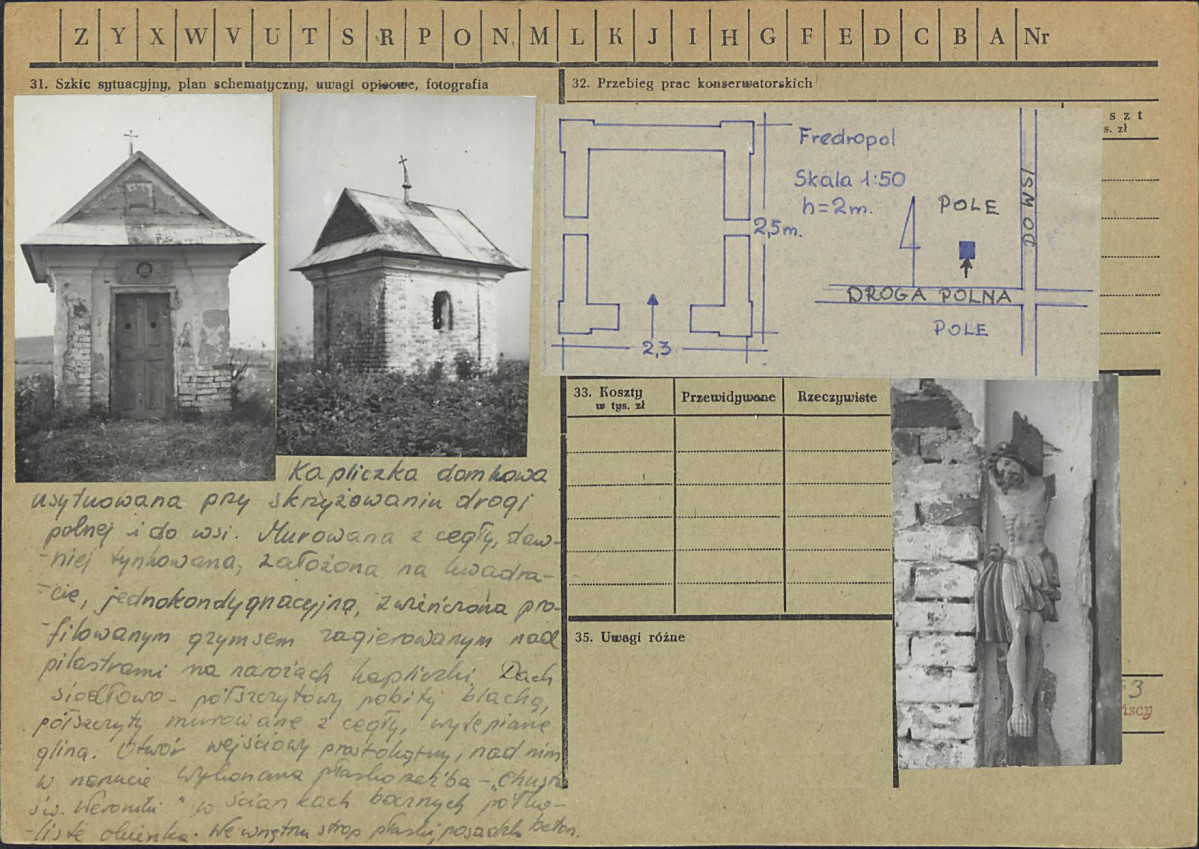 Z Y X W V U T S R P O N M L K J I H G F E D C B A Nr
31. Szkic sytuacyjny, plan schematyczny, uwagi opisowe, fotografia
32. Przebieg prac konserwatorskich
s z t
s. zł
Fredropol
Skala 1:50
h=2m.
2,5m.
2,3
POLE
DROGA POLNA
POLE
DO WSI
33. Koszty
w tys. zł
Przewidywane
Rzeczywiste
35. Uwagi różne
3
Kapliczka domkowa
usytuowana przy skrzyżowaniu drogi
polnej i do wsi. Murowana z cegły, daw-
-niej tynkowana, założona na kwadra-
-cie, jednokondygnacyjna, zwieńczona pro-
-filowanym gzymsem zagierowanym nad
pilastrami na narożach kapliczki. Dach
siodłowo-półszczytowy pobity blachą,
półszczyty murowane z cegły, wylepiane
gliną. Otwór wejściowy prostokątny, nad nim
w wykonana płaskorzeźba - „Chusta
św. Weroniki" w ściankach bocznych półko-
-liste okienka. We wnętrzu strop płaski, posadzka beton.